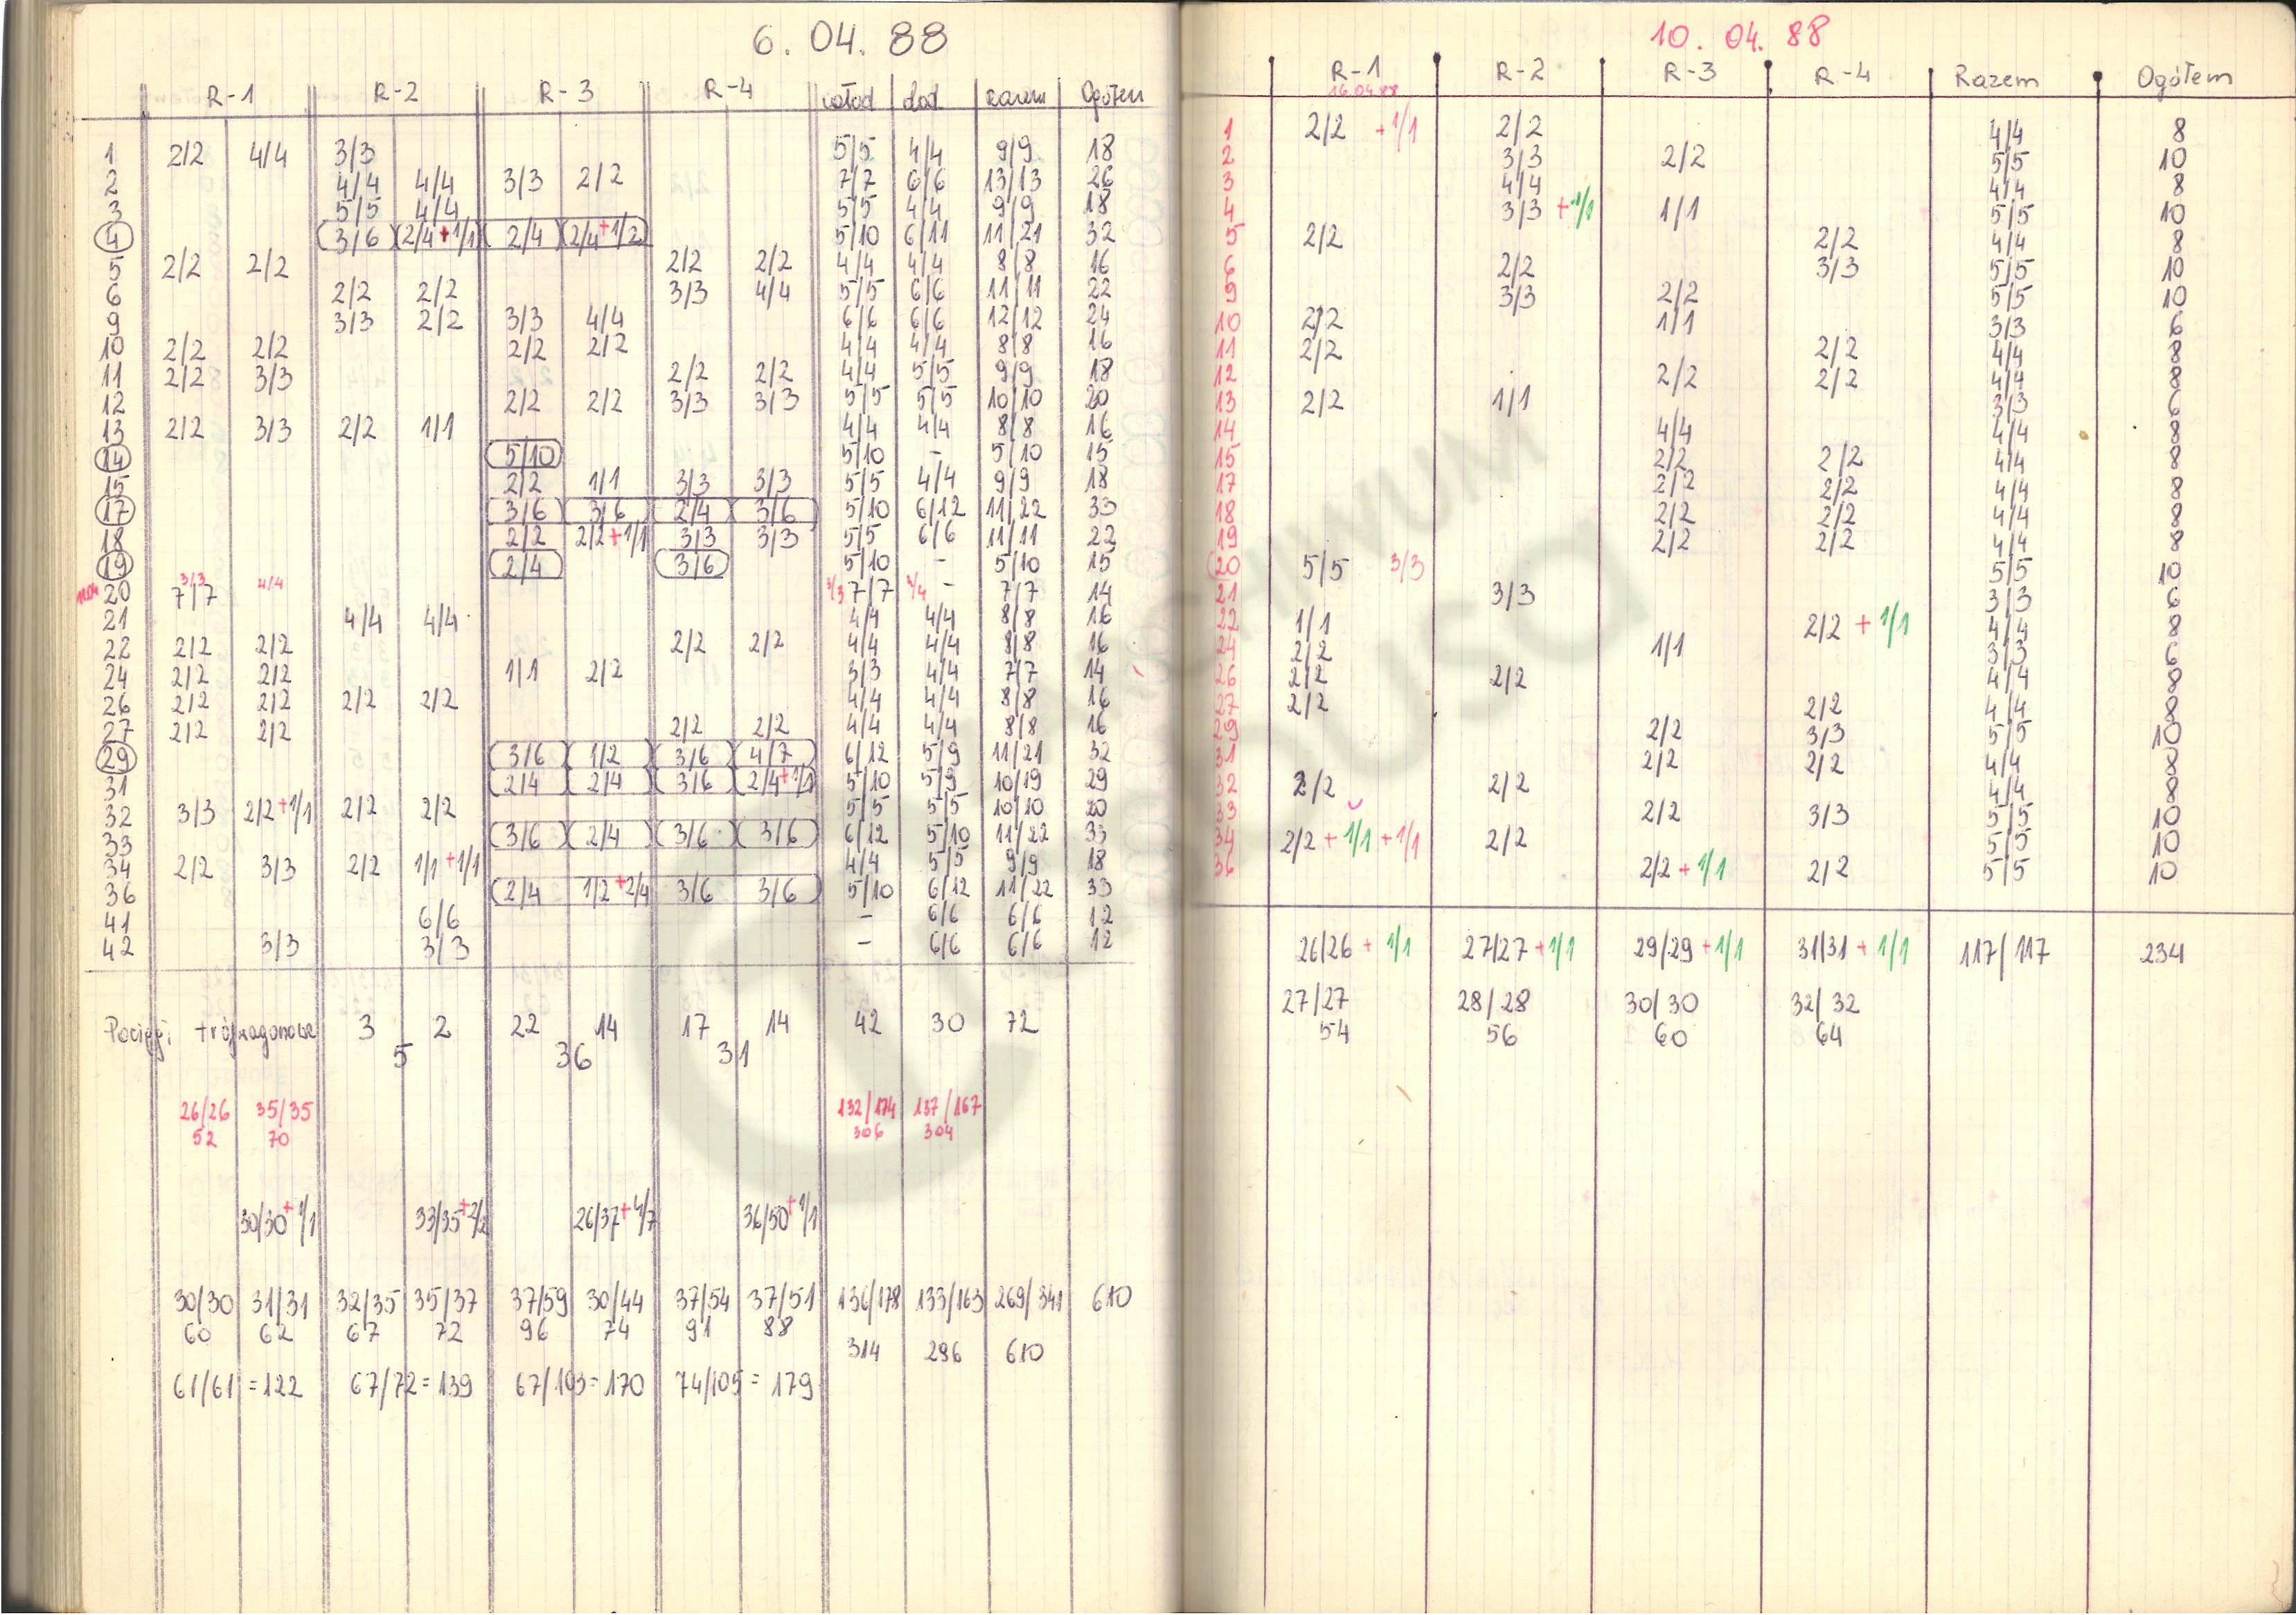 6. 04. 88
R-1 R-2 R-3 R-4 całod dod razem Ogółem
1 2/2 4/4 3/3 5/5 4/4 9/9 18
2 4/4 4/4 3/3 2/2 7/7 6/6 13/13 26
3 5/5 4/4 5/5 4/4 9/9 18
4 3/6 2/4+1/1 2/4 2/4+1/2 5/10 6/11 11/21 32
5 2/2 2/2 2/2 2/2 4/4 4/4 8/8 16
6 2/2 2/2 3/3 4/4 5/5 6/6 11/11 22
9 3/3 2/2 3/3 4/4 6/6 6/6 12/12 24
10 2/2 2/2 2/2 2/2 4/4 4/4 8/8 16
11 2/2 3/3 2/2 2/2 4/4 5/5 9/9 18
12 2/2 2/2 3/3 3/3 5/5 5/5 10/10 20
13 2/2 3/3 2/2 1/1 4/4 4/4 8/8 16
14 5/10 5/10 - 5/10 15
15 2/2 1/1 3/3 3/3 5/5 4/4 9/9 18
17 3/6 3/6 2/4 3/6 5/10 6/12 11/22 33
18 2/2 2/2+1/1 3/3 3/3 5/5 6/6 11/11 22
19 2/4 3/6 5/10 - 5/10 15
3/3 4/4 3/3 3/4
11.04 20 7/7 7/7 - 7/7 14
21 4/4 4/4 4/4 4/4 8/8 16
22 2/2 2/2 2/2 2/2 4/4 4/4 8/8 16
24 2/2 2/2 1/1 2/2 3/3 4/4 7/7 14
26 2/2 2/2 2/2 2/2 4/4 4/4 8/8 16
27 2/2 2/2 2/2 2/2 4/4 4/4 8/8 16
29 3/6 1/2 3/6 4/7 6/12 5/9 11/21 32
31 2/4 2/4 3/6 2/4+1/1 5/10 5/9 10/19 29
32 3/3 2/2+1/1 2/2 2/2 5/5 5/5 10/10 20
33 3/6 2/4 3/6 3/6 6/12 5/10 11/22 33
34 2/2 3/3 2/2 1/1+1/1 4/4 5/5 9/9 18
36 2/4 1/2+2/4 3/6 3/6 5/10 6/12 11/22 33
41 6/6 - 6/6 6/6 12
42 3/3 3/3 - 6/6 6/6 12
Pociągi trójwagonowe 3 2 22 14 17 14 42 30 72
5 36 31
26/26 35/35 132/174 137/167
52 70 306 304
30/30+1/1 33/35+2/2 26/37+4/7 36/50+1/1
30/30 31/31 32/35 35/37 37/59 30/44 37/54 37/51 136/178 133/163 269/341 610
60 62 67 72 96 74 91 88
314 296 610
61/61=122 67/72=139 67/103=170 74/105=179
10. 04. 88
R-1 R-2 R-3 R-4 Razem Ogółem
16.04.88
1 2/2 +1/1 2/2 4/4 8
2 3/3 2/2 5/5 10
3 4/4 4/4 8
4 3/3+1/1 1/1 5/5 10
5 2/2 2/2 4/4 8
6 2/2 3/3 5/5 10
9 3/3 2/2 5/5 10
10 2/2 1/1 3/3 6
11 2/2 2/2 4/4 8
12 2/2 2/2 4/4 8
13 2/2 1/1 3/3 6
14 4/4 4/4 8
15 2/2 2/2 4/4 8
17 2/2 2/2 4/4 8
18 2/2 2/2 4/4 8
19 2/2 2/2 4/4 8
20 5/5 3/3 5/5 10
21 3/3 3/3 6
22 1/1 2/2+1/1 4/4 8
24 2/2 1/1 3/3 6
26 2/2 2/2 4/4 8
27 2/2 2/2 4/4 8
29 2/2 3/3 5/5 10
31 2/2 2/2 4/4 8
32 2/2 2/2 4/4 8
33 2/2 3/3 5/5 10
34 2/2+1/1+1/1 2/2 5/5 10
36 2/2+1/1 2/2 5/5 10
26/26+1/1 27/27+1/1 29/29+1/1 31/31+1/1 117/117 234
27/27 28/28 30/30 32/32
54 56 60 64